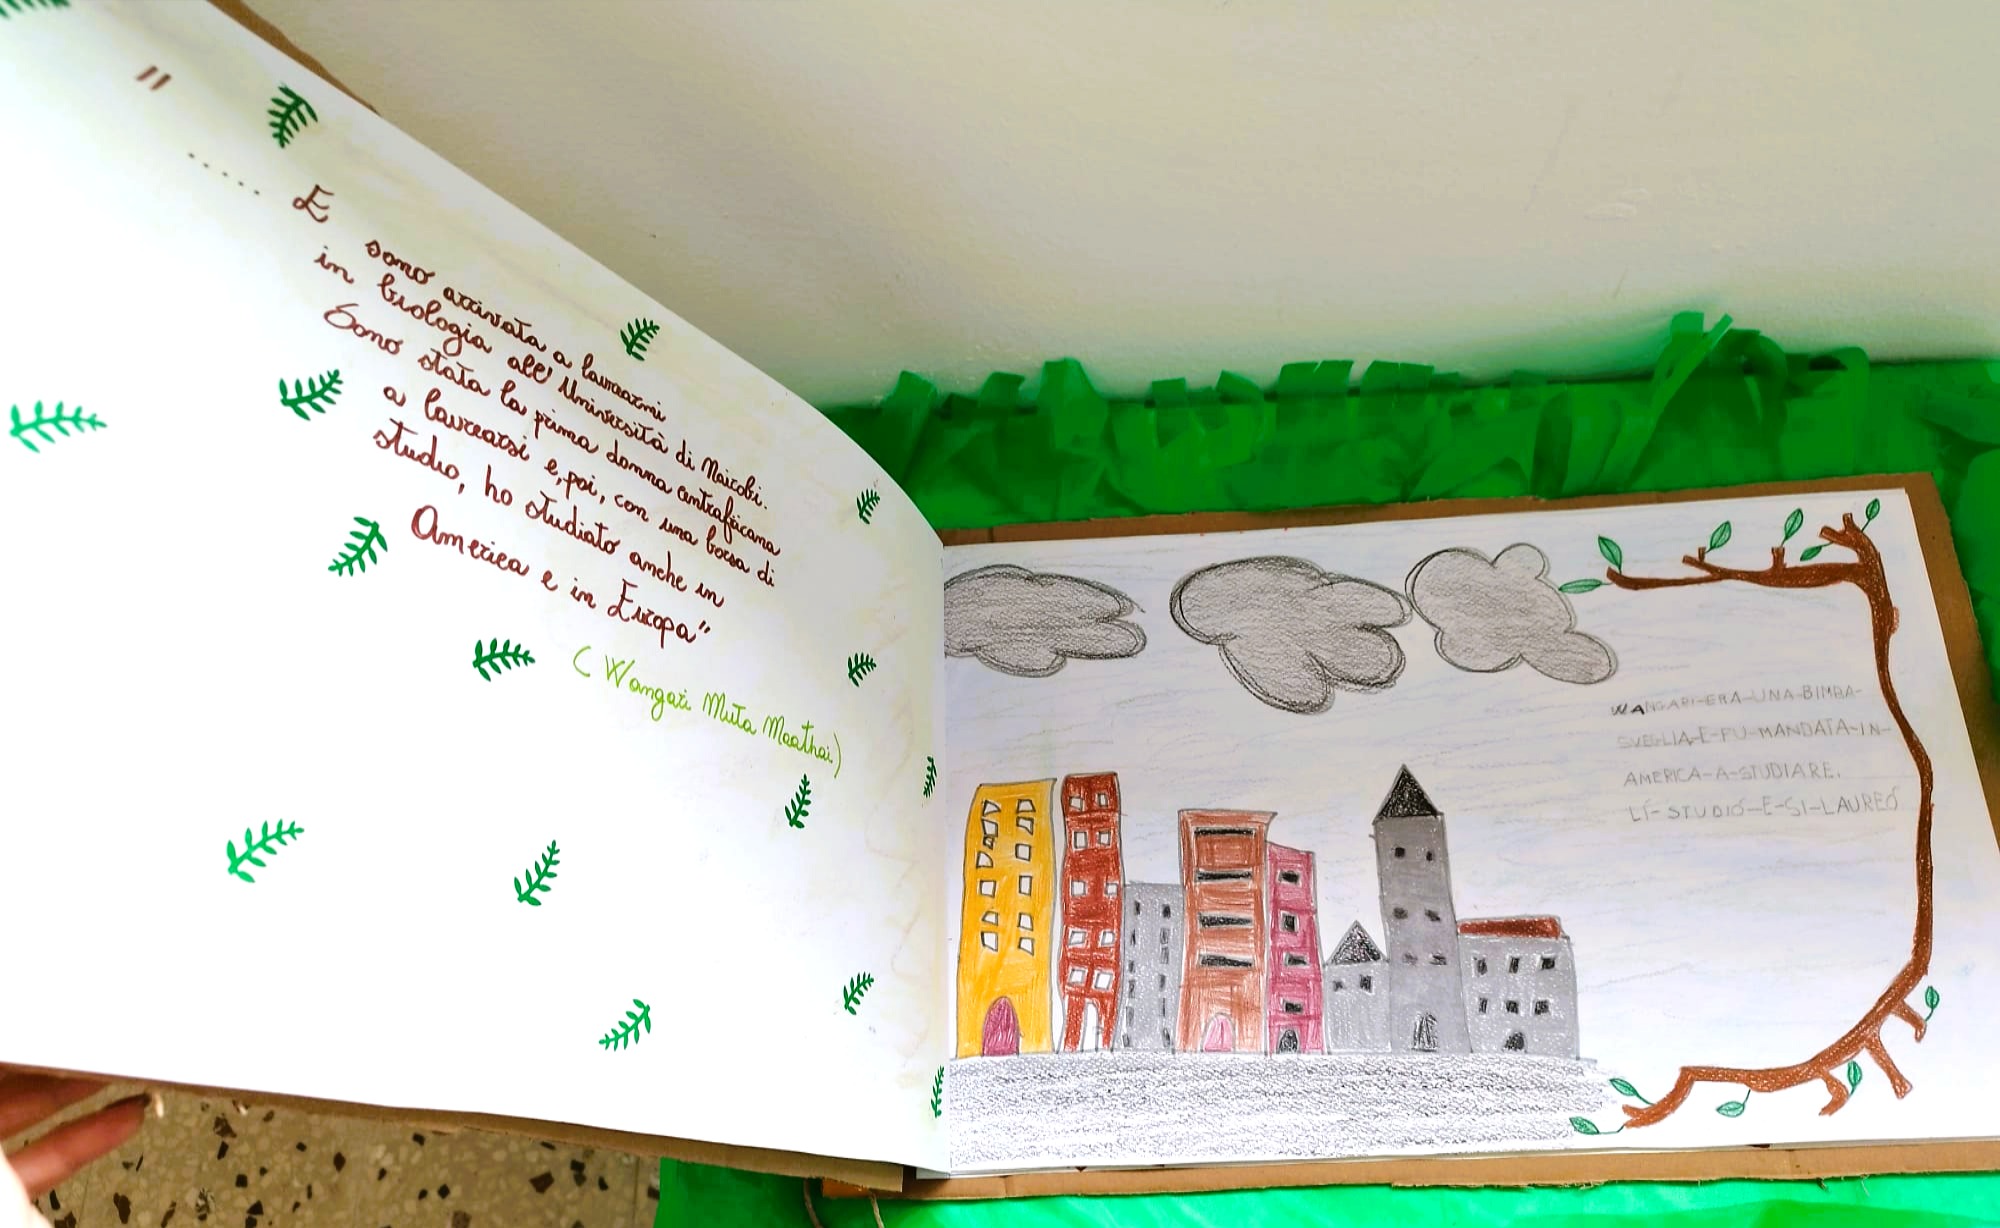 "
...... E
sono arrivata a laurearmi
in biologia all'Università di Nairobi.
Sono stata la prima donna centrafricana
a laurearsi e, poi, con una borsa di
studio, ho studiato anche in
America e in Europa"
(Wangari Muta Maathai)
WANGARI-ERA-UNA-BIMBA-
SVEGLIA-E-FU-MANDATA-IN-
AMERICA-A-STUDIARE.
LÍ-STUDIÓ-E-SI-LAUREÓ